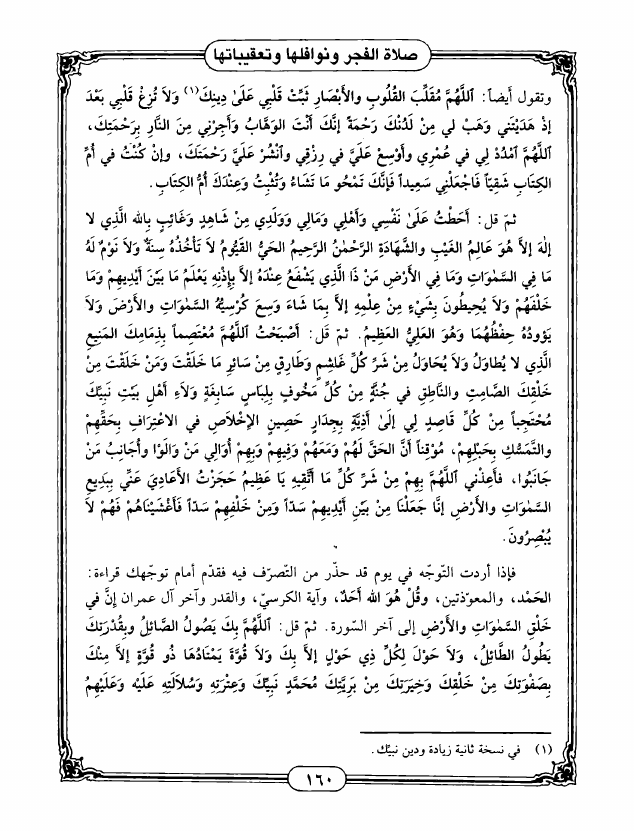 صلاة الفجر ونوافلها وتعقيباتها
وتقول أيضاً: اَللَّهُمَّ مُقَلِّبَ القُلُوبِ والأَبْصَارِ ثَبِّتْ قَلْبِي عَلَىٰ دِينِكَ(١) وَلاَ تُزِغْ قَلْبِي بَعْدَ
إذْ هَدَيْتَنِي وَهَبْ لي مِنْ لَدُنْكَ رَحْمَةً إنَّكَ أَنْتَ الوَهَّابُ وَأَجِرْنِي مِنَ النَّارِ بِرَحْمَتِكَ،
اَللَّهُمَّ اَمْدُدْ لِي في عُمْرِي وأَوْسِعْ عَلَيَّ في رِزْقِي وٱنْشُرْ عَلَيَّ رَحْمَتَكَ، وإنْ كُنْتُ في أُمِّ
الكِتَابِ شَقِيّاً فَاجْعَلْنِي سَعِيداً فَإِنَّكَ تَمْحُو مَا تَشَاءُ وَتُثْبِتُ وَعِنْدَكَ أُمُّ الكِتَابِ.
ثمّ قل: أَحَطْتُ عَلَىٰ نَفْسِي وَأَهْلِي وَمَالِي وَوَلَدِي مِنْ شَاهِدٍ وَغَائِبٍ بِالله الَّذِي لا
إلٰهَ إلاَّ هُوَ عَالِمُ الغَيْبِ والشَّهَادَةِ الرَّحْمٰنُ الرَّحِيمُ الحَيُّ القَيُّومُ لاَ تَأْخُذُهُ سِنَةٌ وَلاَ نَوْمٌ لَهُ
مَا فِي السَّمٰوَاتِ وَمَا فِي الأَرْضِ مَنْ ذَا الَّذِي يَشْفَعُ عِنْدَهُ إلاَّ بِإِذْنِهِ يَعْلَمُ مَا بَيْنَ أَيْدِيهِمْ وَمَا
خَلْفَهُمْ وَلاَ يُحِيطُونَ بِشَيْءٍ مِنْ عِلْمِهِ إلاَّ بِمَا شَاءَ وَسِعَ كُرْسِيُّهُ السَّمٰوَاتِ والأَرْضَ وَلاَ
يَؤودُهُ حِفْظُهُمَا وَهُوَ العَلِيُّ العَظِيمُ. ثمّ قل: أَصْبَحْتُ اللَّهُمَّ مُعْتَصِماً بِذِمَامِكَ المَنِيعِ
الَّذِي لا يُطَاوَلُ وَلاَ يُحَاوَلُ مِنْ شَرِّ كُلِّ غَاشِمٍ وَطَارِقٍ مِنْ سَائِرِ مَا خَلَقْتَ وَمَنْ خَلَقْتَ مِنْ
خَلْقِكَ الصَّامِتِ والنَّاطِقِ فِي جُنَّةٍ مِنْ كُلِّ مَخُوفٍ بِلِبَاسٍ سَابِغَةٍ وَلاَءِ أَهْلِ بَيْتِ نَبِيِّكَ
مُحْتَجِباً مِنْ كُلِّ قَاصِدٍ لِي إِلَىٰ أَذِيَّةٍ بِجِدَارٍ حَصِينٍ الإِخْلاَصِ في الاعْتِرَافِ بِحَقِّهِمْ
والتَّمَسُّكِ بِحَبْلِهِمْ، مُوْقِناً أَنَّ الحَقَّ لَهُمْ وَمَعَهُمْ وَفِيهِمْ وَبِهِمْ أُوَالِي مَنْ وَالَوْا وأُجَانِبُ مَنْ
جَانَبُوا، فَأَعِذْنِي اَللَّهُمَّ بِهِمْ مِنْ شَرِّ كُلِّ مَا أَتَّقِيهِ يَا عَظِيمُ حَجَزْتُ الأَعَادِيَ عَنِّي بِبَدِيعِ
السَّمٰوَاتِ والأَرْضِ، إنَّا جَعَلْنَا مِنْ بَيْنِ أَيْدِيهِمْ سَدّاً وَمِنْ خَلْفِهِمْ سَدّاً فَأَغْشَيْنَاهُمْ فَهُمْ لاَ
يُبْصِرُونَ.
فإذا أردت التوجّه في يوم قد حذّر من التّصرّف فيه فقدّم أمام توجّهك قراءة:
الحَمْد، والمعوّذتين، وقُلْ هُوَ الله أَحَدٌ، وآية الكرسيّ، والقدر وآخر آل عمران إنَّ في
خَلْقِ السَّمٰوَاتِ والأَرْضِ إلى آخر السّورة. ثمّ قل: اَللَّهُمَّ بِكَ يَصُولُ الصَّائِلُ وبِقُدْرَتِكَ
يَطُولُ الطَّائِلُ، وَلاَ حَوْلَ لِكُلِّ ذِي حَوْلٍ إلاَّ بِكَ وَلاَ قُوَّةَ يَمْتَادُهَا ذُو قُوَّةٍ إلاَّ مِنْكَ
بِصَفْوَتِكَ مِنْ خَلْقِكَ وَخِيَرَتِكَ مِنْ بَرِيَّتِكَ مُحَمَّدٍ نَبِيِّكَ وَعِتْرَتِهِ وَسُلاَلَتِهِ عَلَيْهِ وَعَلَيْهِمُ
(١) في نسخة ثانية زيادة ودين نبيّك.
١٦٠